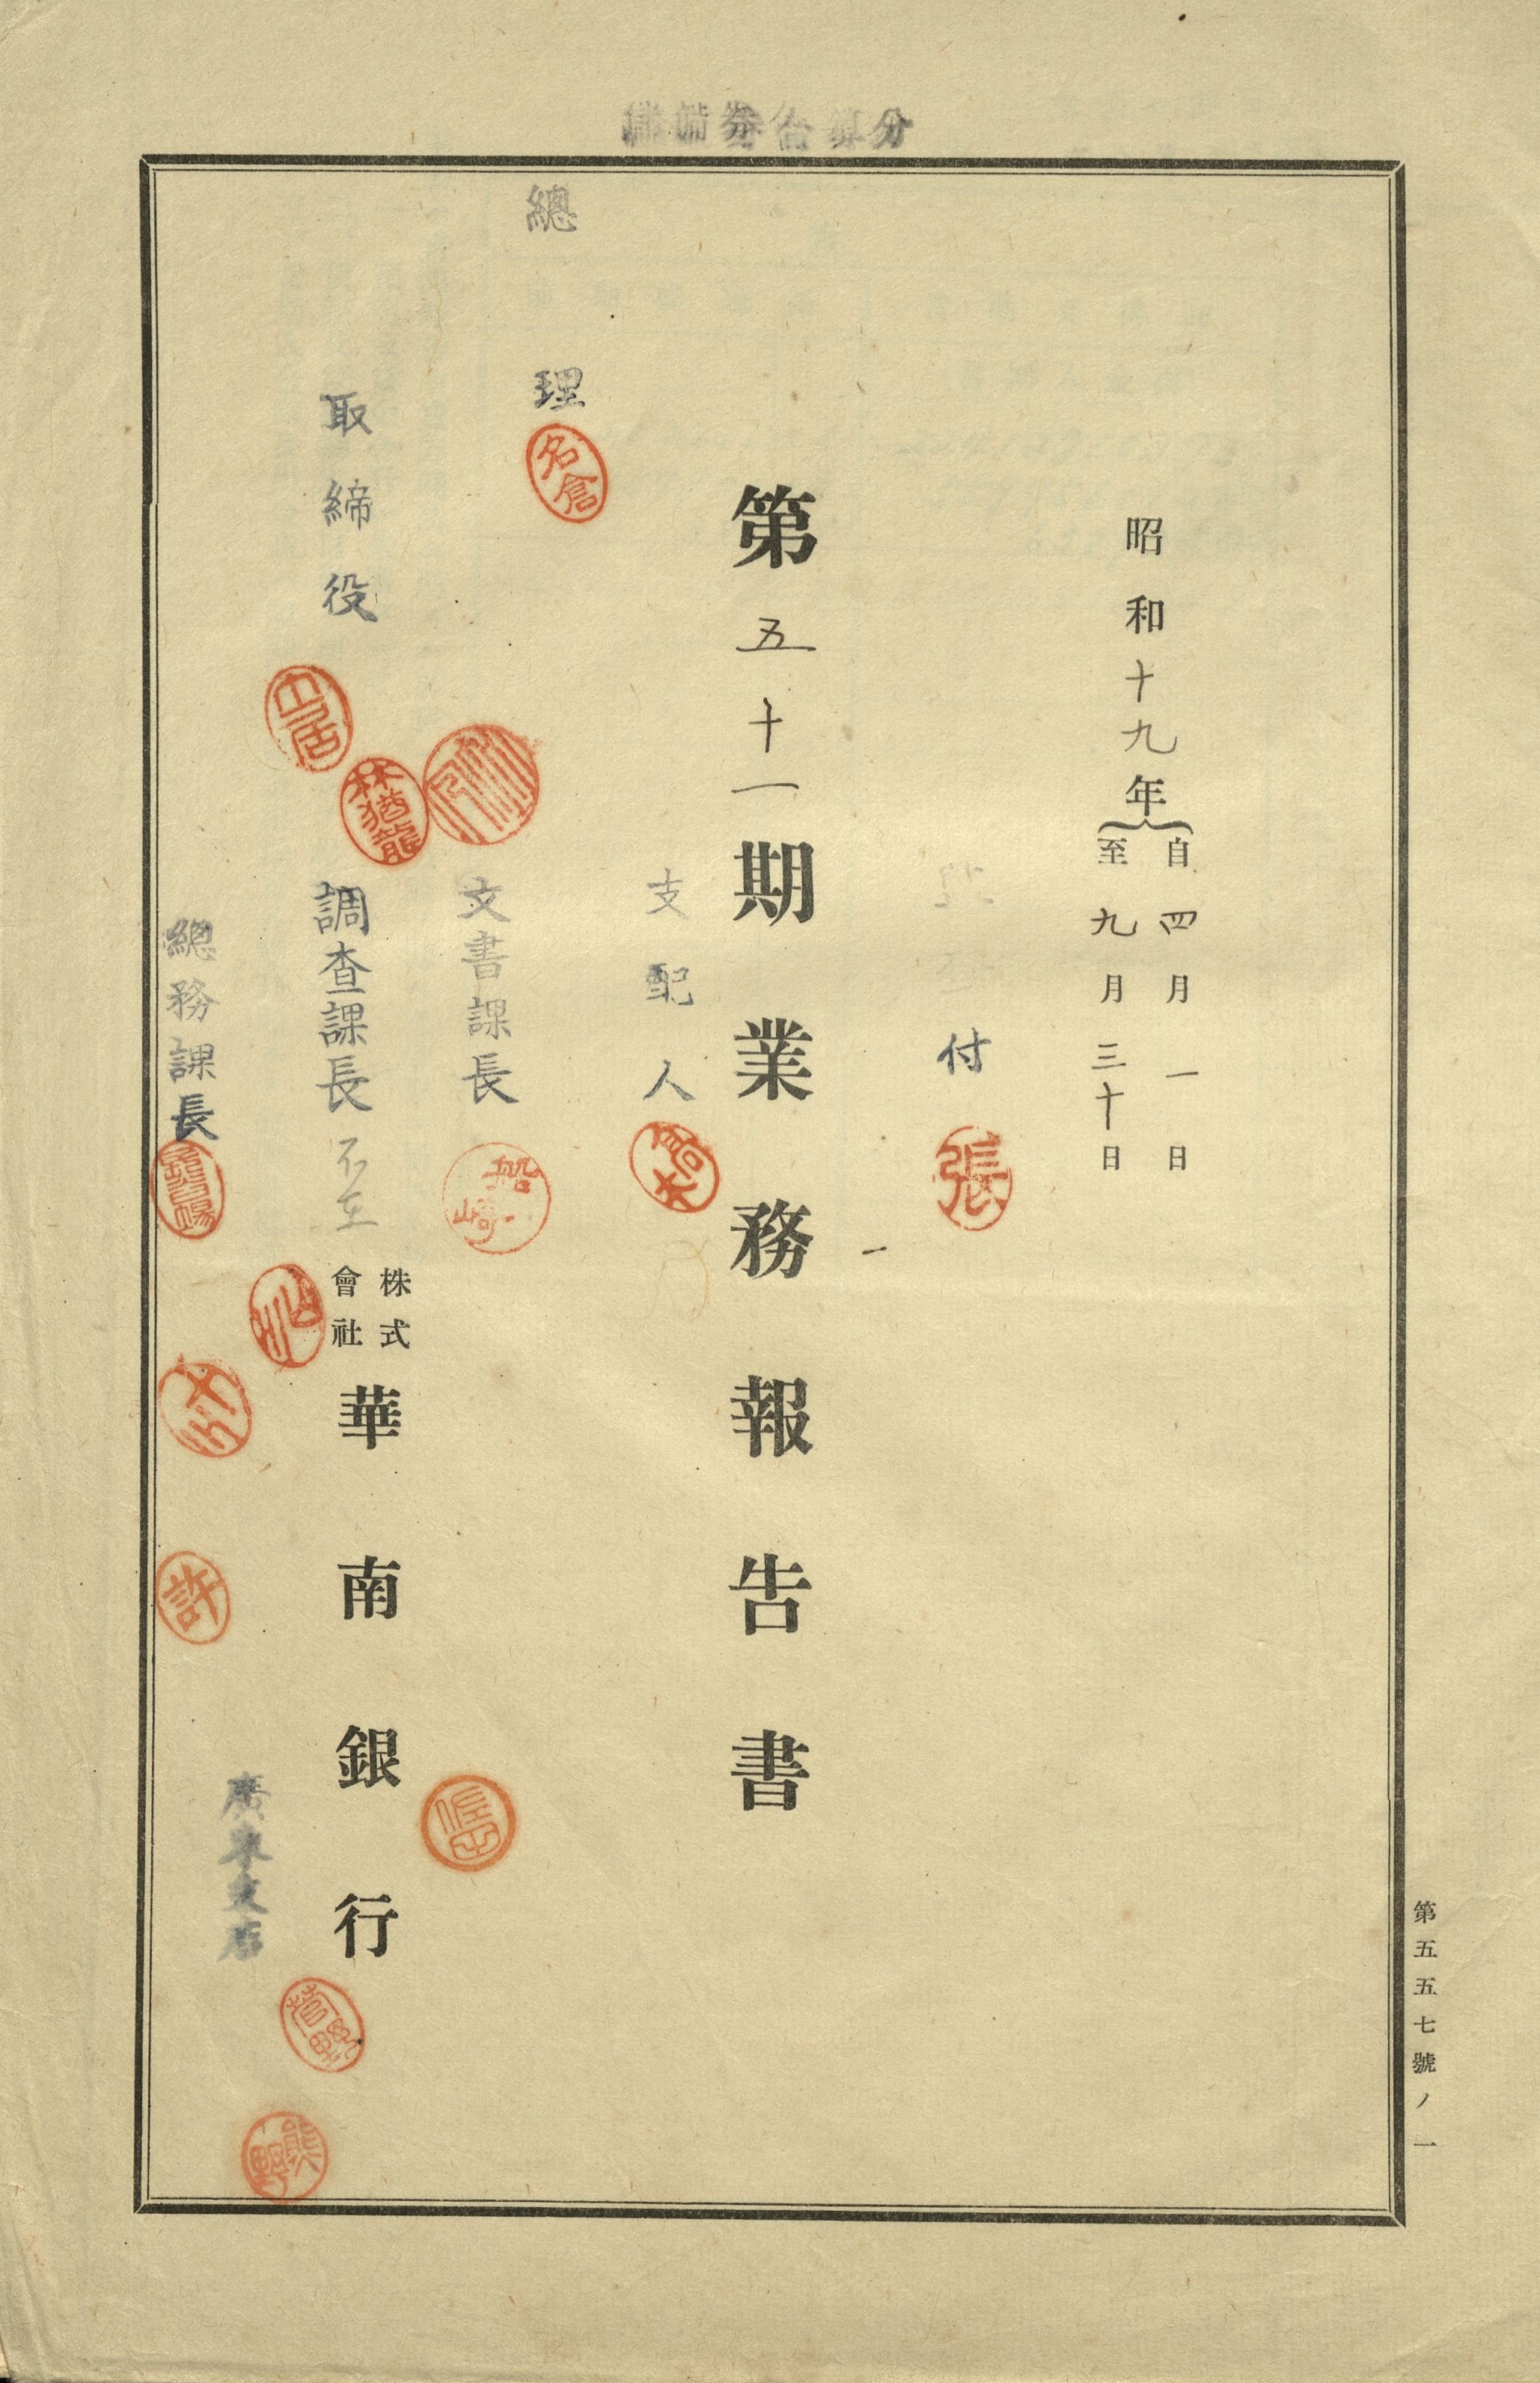 昭和十九年{自四月一日
至九月三十日
付
張
第五十一期業務報告書
支配人
總理
名倉
文書課長
船崎
取締役
林猶龍
調査課長
株式會社華南銀行
總務課長
許
廣東支店
菅野
熊野
第五五七號ノ一